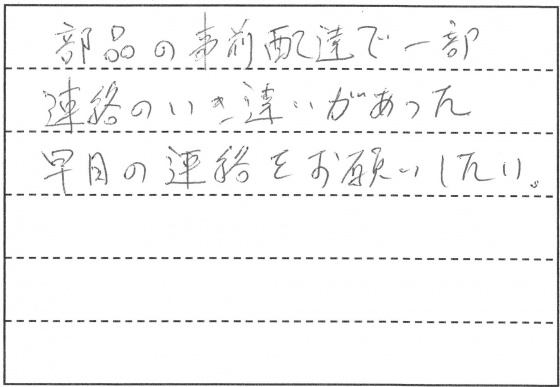 部品の事前配達で一部
連絡のいき違いがあった
早目の連絡をお願いしたい。